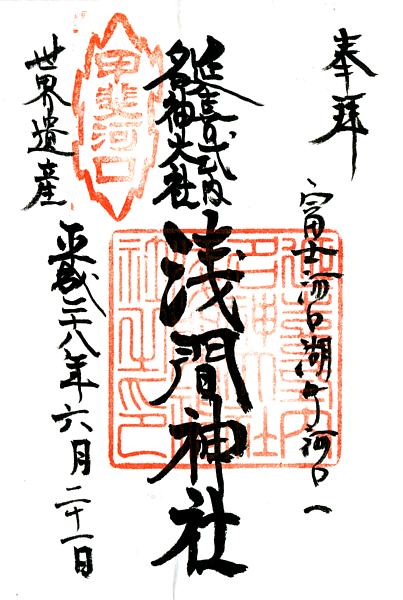 奉拝
富士河口湖町河口一
延喜式内
名神大社
浅間神社
甲斐河口
世界遺産
平成二十八年六月二十一日